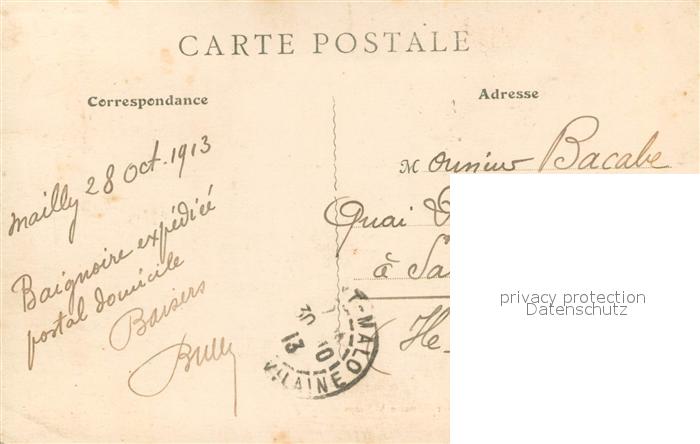 CARTE POSTALE
Correspondance
Adresse
Mailly 28 Oct. 1913
Baignoire expédiée
postal domicile
Baisers
Bully
Monsieur Bacabe
Quai
à Sa
He
T-MALO
30 10
13
VILAINE
privacy protection
Datenschutz